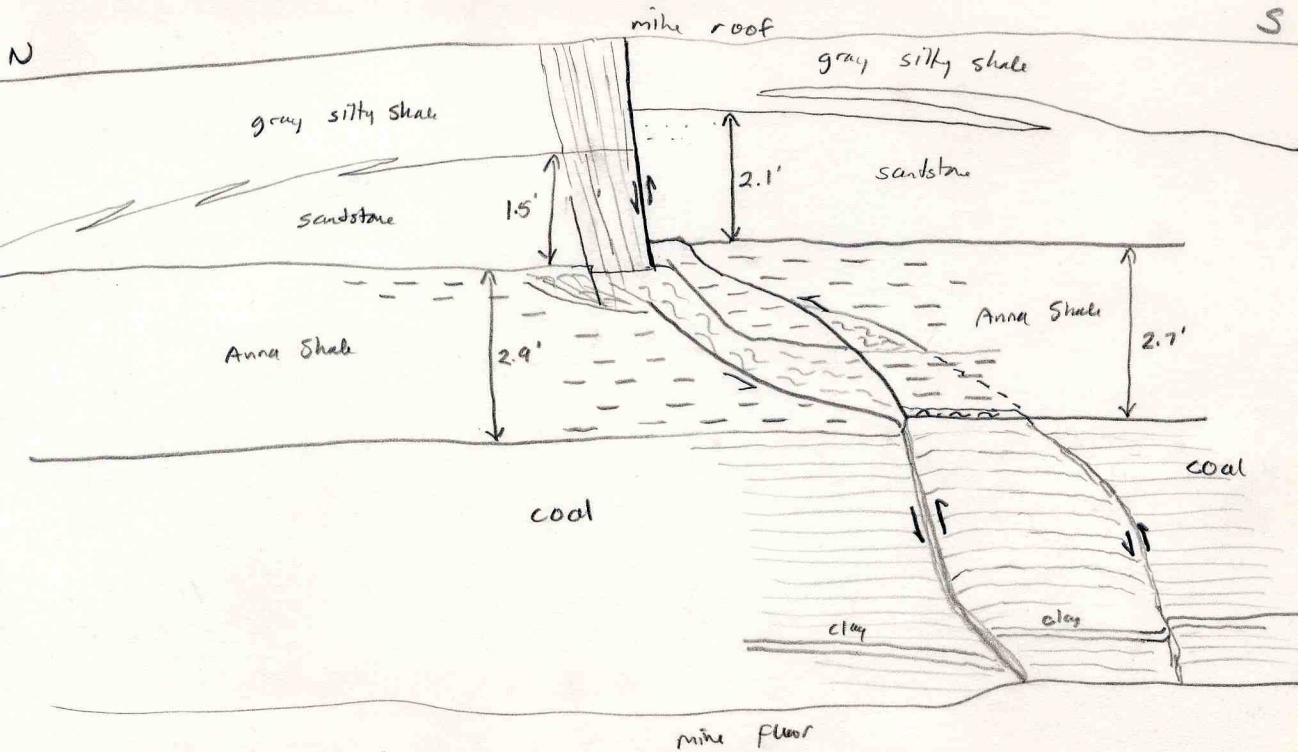 N
mine roof
S
gray silty shale
gray silty shale
sandstone
1.5'
2.1'
sandstone
Anna Shale
2.9'
Anna Shale
2.7'
coal
coal
clay
clay
mine floor